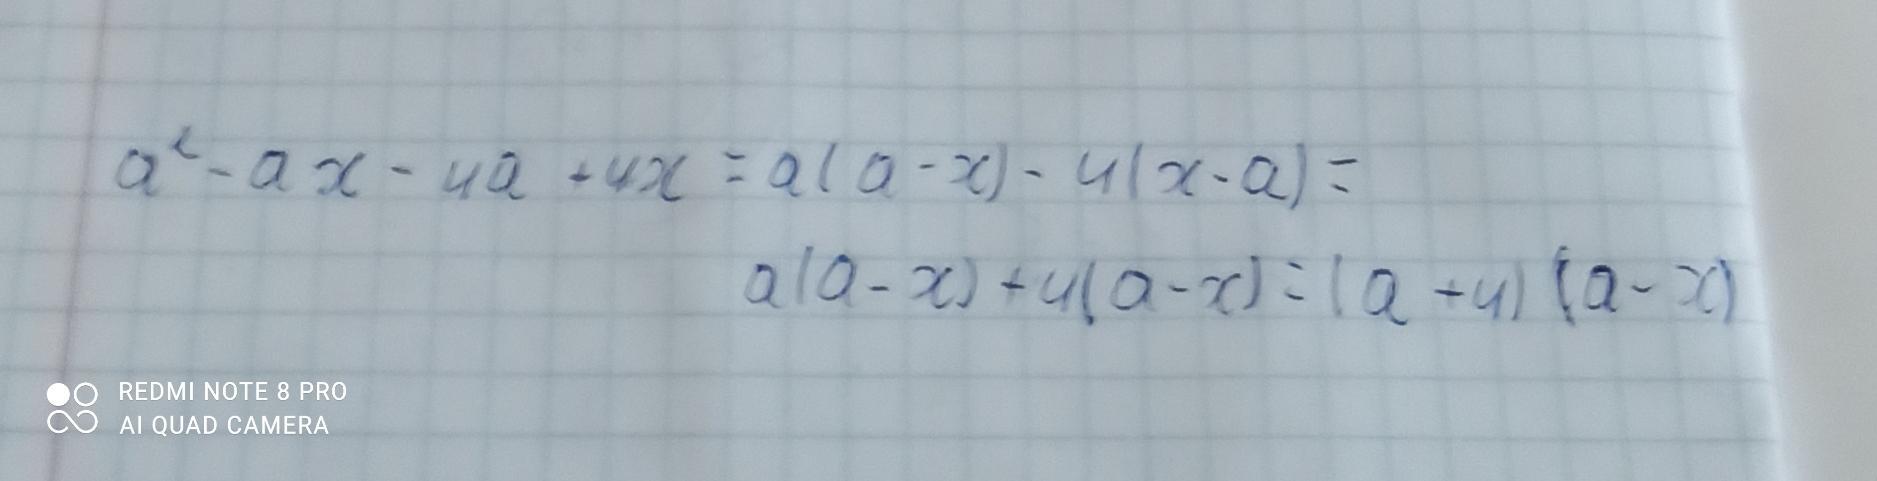 a² - ax - 4a + 4x = a(a - x) - 4(x - a) =
a(a - x) + 4(a - x) = (a + 4)(a - x)
REDMI NOTE 8 PRO
AI QUAD CAMERA